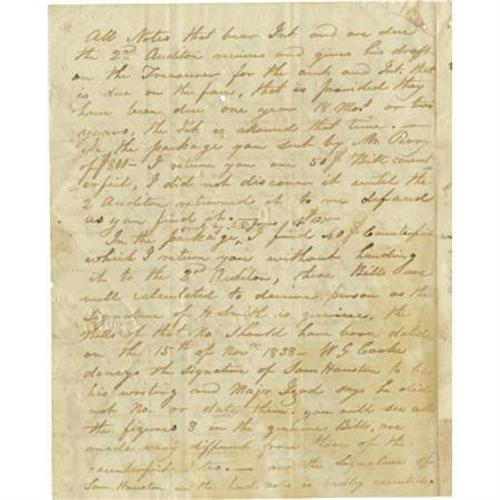 All Notes that bear Int and are due
the 2nd Auditor receives and gives his draft
on the Treasurer for the amt and Int. that
is due on the face, that is provided they
have been due one year 18 Mos or two
years, the Int is allowed that time. —
In the package you sent by Mr Perry
of $800 — I return you one 50$ Bill count
erfeit, I did not discover it until the
2 Auditor returned it to me defaced
as you find it.
In the package, I find 50$ Counterfeit
which I return you without handing
it to the 2nd Auditor, these Bills are
well calculated to deceive person as the
signature of H Smith is genuine, the
Bills of that No. should have been dated
on the 15th of Novr 1838 — W G Cooke
denys the signature of Sam Houston to be
his writing and Major Izod says he did
not No. or date them. you will see all
the figures 8 in the genuine Bills, are
made very different from those of the
counterfeit — and the Signature of
Sam Houston the bad notes is badly executed